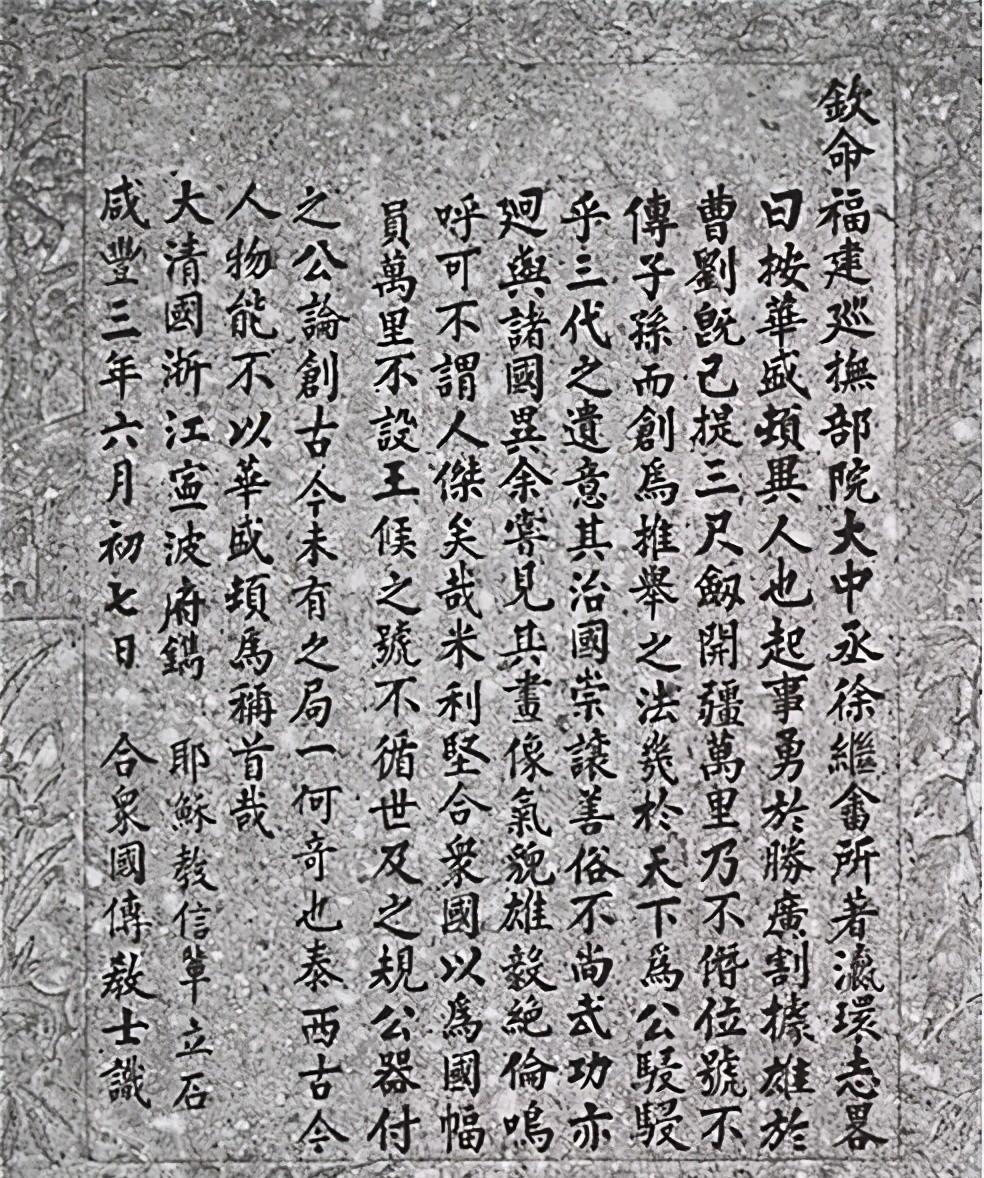 欽命福建廵撫部院大中丞徐繼畬所著瀛環志畧
曰按華盛頓異人也起事勇於勝廣割據雄於
曹劉既已提三尺劔開疆萬里乃不僭位號不
傳子孫而創爲推舉之法幾於天下爲公駸駸
乎三代之遺意其治國崇讓善俗不尚武功亦
迥與諸國異余嘗見其畫像氣貌雄毅絶倫嗚
呼可不謂人傑矣哉米利堅合衆國以爲國幅
員萬里不設王侯之號不循世及之規公器付
之公論創古今未有之局一何奇也泰西古今
人物能不以華盛頓爲稱首哉
大清國浙江寧波府鐫 耶穌教信輩立石
咸豐三年六月初七日 合衆國傳教士識